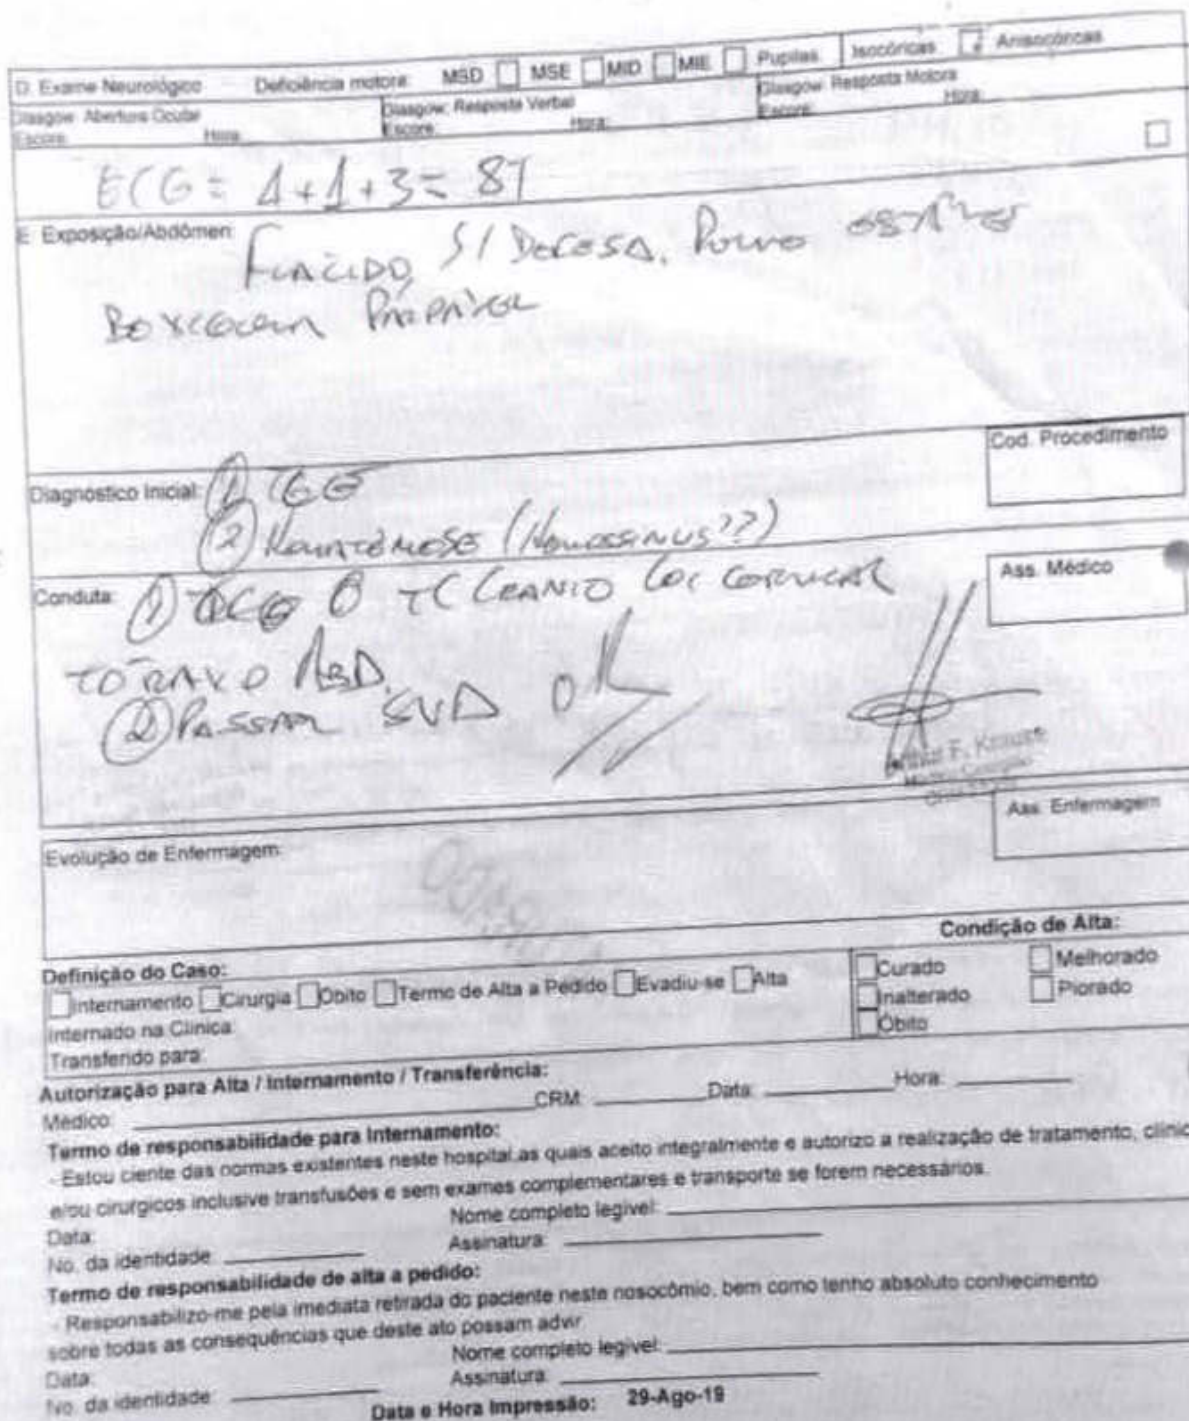 D. Exame Neurológico Deficiência motora: MSD MSE MID MIE Pupilas Isocóricas Anisocóricas
Glasgow: Abertura Ocular Glasgow: Resposta Verbal Glasgow: Resposta Motora
Escore: Hora: Escore: Hora: Escore: Hora:
ECG = 1+1+3= 8T
E Exposição/Abdômen:
FLÁCIDO, S/ DEFESA.
PALPÁVEL
Cod. Procedimento
Diagnóstico Inicial: 1
2 (Hemossinus??)
Conduta: 1 TC CRANIO CERVICAL
Ass. Médico
2 PASSAR SVD
F. Krause
Ass. Enfermagem
Evolução de Enfermagem:
Condição de Alta:
Definição do Caso:
Internamento Cirurgia Óbito Termo de Alta a Pedido Evadiu-se Alta
Curado Melhorado
Inalterado Piorado
Óbito
Internado na Clínica:
Transferido para:
Autorização para Alta / Internamento / Transferência:
Médico: CRM: Data: Hora:
Termo de responsabilidade para Internamento:
- Estou ciente das normas existentes neste hospital,as quais aceito integralmente e autorizo a realização de tratamento, clínic
e/ou cirurgicos inclusive transfusões e sem exames complementares e transporte se forem necessários.
Data: Nome completo legível:
No. da identidade: Assinatura:
Termo de responsabilidade de alta a pedido:
- Responsabilizo-me pela imediata retirada do paciente neste nosocômio, bem como tenho absoluto conhecimento
sobre todas as consequências que deste ato possam advir.
Data: Nome completo legível:
No. da identidade: Assinatura:
Data e Hora Impressão: 29-Ago-19